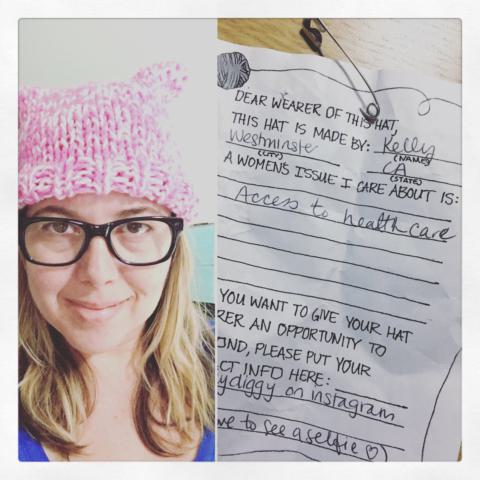 DEAR WEARER OF THIS HAT,
THIS HAT IS MADE BY: Kelly
(NAME)
Westminster CA
(CITY) (STATE)
A WOMENS ISSUE I CARE ABOUT IS:
Access to healthcare
YOU WANT TO GIVE YOUR HAT
RER AN OPPORTUNITY TO
OND, PLEASE PUT YOUR
CT INFO HERE:
ydiggy on instagram
me to see a selfie ♡)